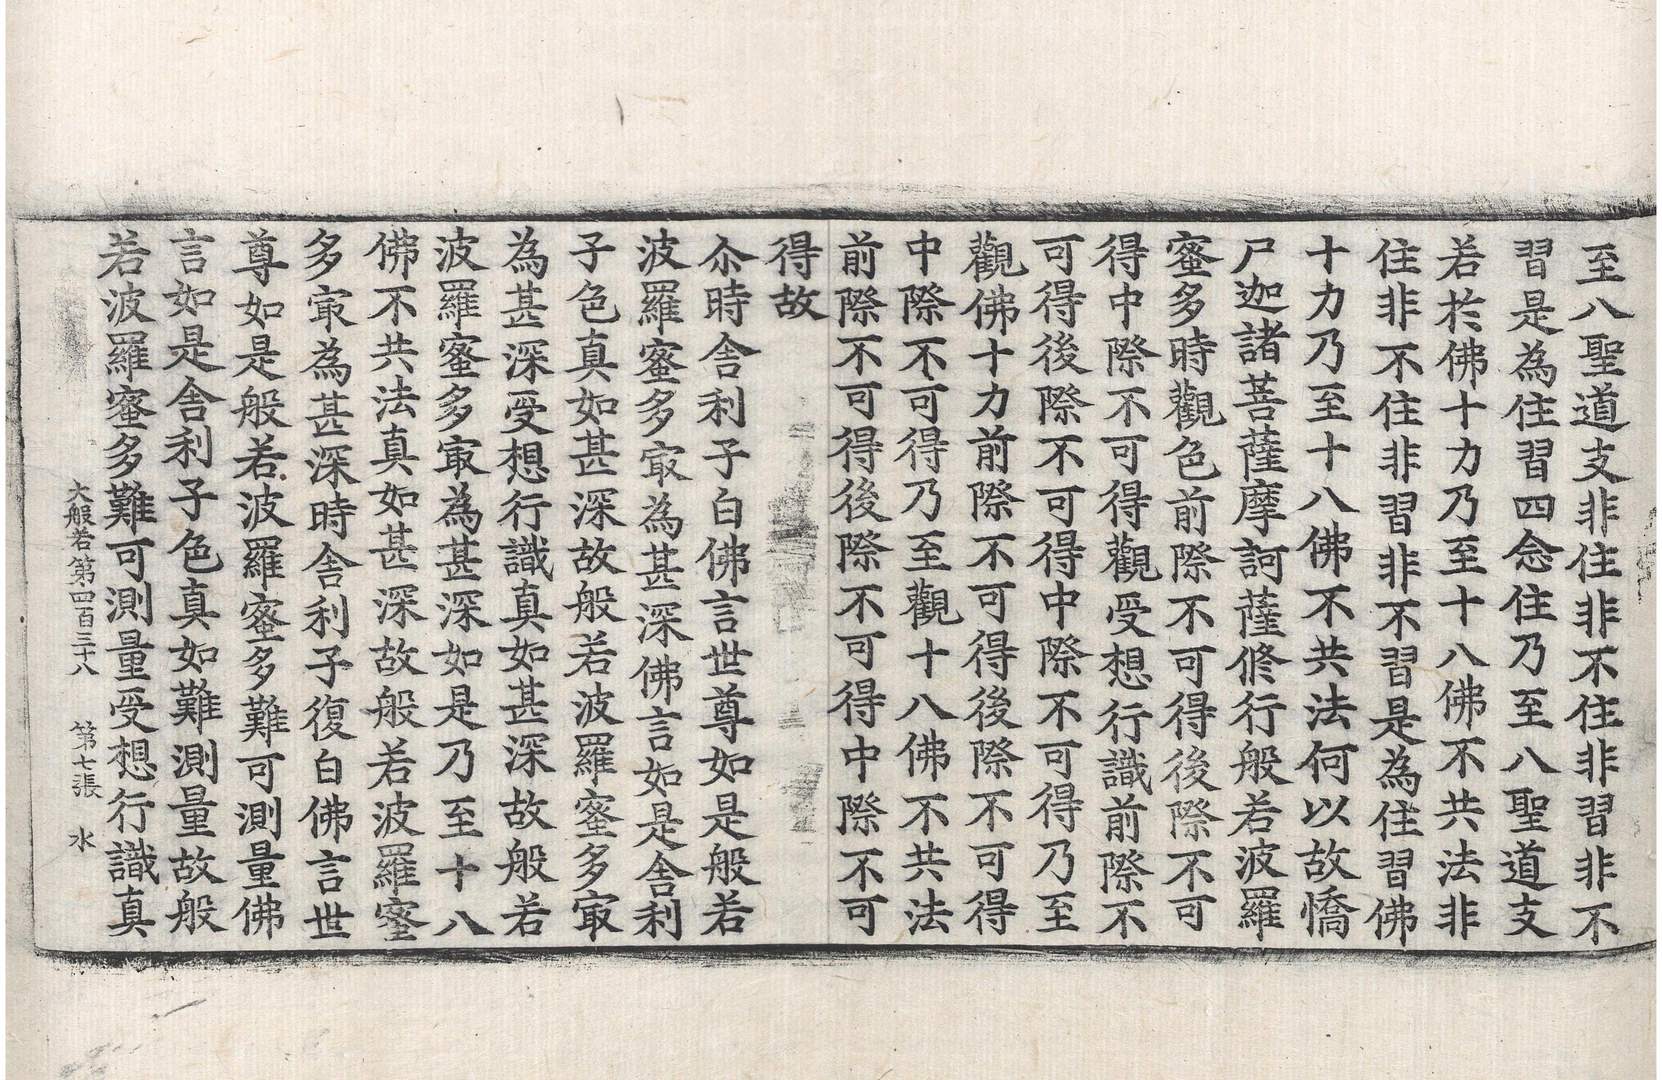 至八聖道支非住非不住非習非不
習是為住習四念住乃至八聖道支
若於佛十力乃至十八佛不共法非
住非不住非習非不習是為住習佛
十力乃至十八佛不共法何以故憍
尸迦諸菩薩摩訶薩修行般若波羅
蜜多時觀色前際不可得後際不可
得中際不可得觀受想行識前際不
可得後際不可得中際不可得乃至
觀佛十力前際不可得後際不可得
中際不可得乃至觀十八佛不共法
前際不可得後際不可得中際不可
得故
尒時舎利子白佛言世尊如是般若
波羅蜜多㝡為甚深佛言如是舎利
子色真如甚深故般若波羅蜜多㝡
為甚深受想行識真如甚深故般若
波羅蜜多㝡為甚深如是乃至十八
佛不共法真如甚深故般若波羅蜜
多㝡為甚深時舎利子復白佛言世
尊如是般若波羅蜜多難可測量佛
言如是舎利子色真如難測量故般
若波羅蜜多難可測量受想行識真
大般若第四百三十八 第七張 水